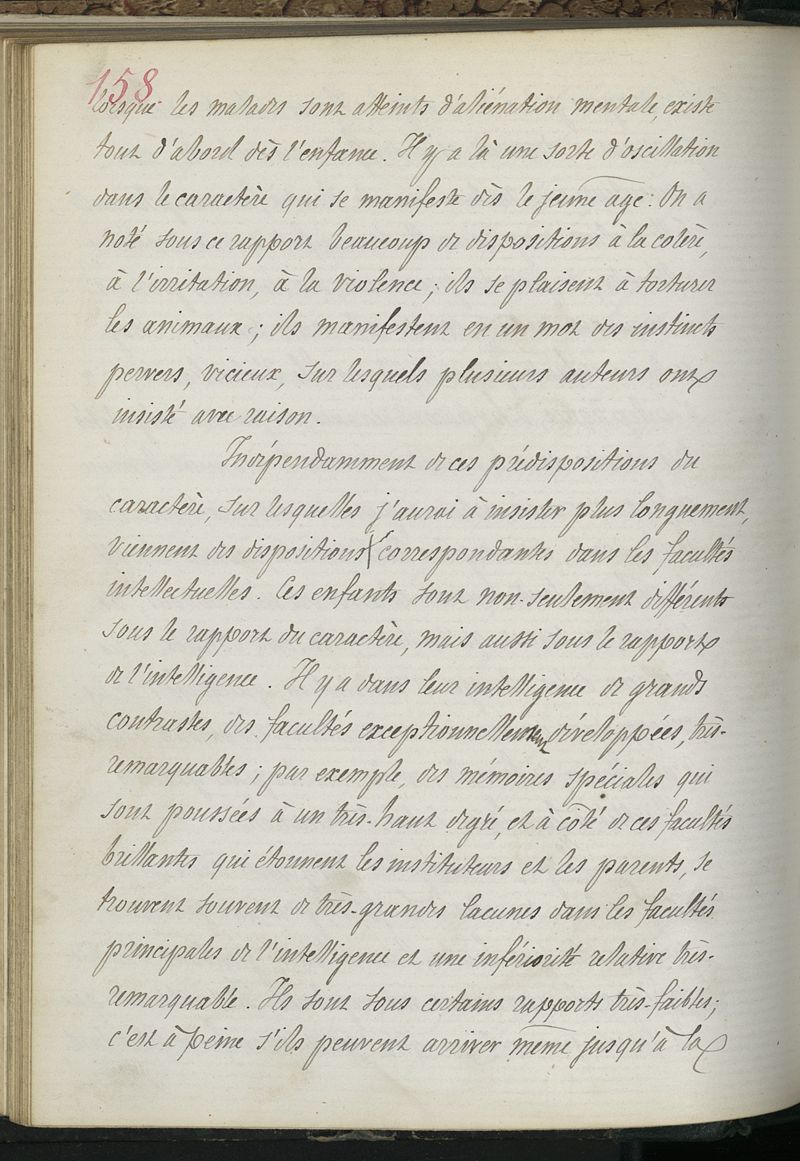 158
lorsque les malades sont atteints d'aliénation mentale, existe
tout d'abord dès l'enfance. Il y a là une sorte d'oscillation
dans le caractère qui se manifeste dès le jeune age. On a
noté sous ce rapport beaucoup de dispositions à la colère,
à l'irritation, à la violence ; ils se plaisent à torturer
les animaux ; ils manifestent en un mot des instincts
pervers, vicieux, sur lesquels plusieurs auteurs ont
insisté avec raison.
Indépendamment de ces prédispositions du
caractère, sur lesquelles j'aurai à insister plus longuement,
viennent des dispositions correspondantes dans les facultés
intellectuelles. Ces enfants sont non-seulement différents
sous le rapport du caractère, mais aussi sous le rapport
de l'intelligence. Il y a dans leur intelligence de grands
contrastes, des facultés exceptionnellement développées, très-
remarquables ; par exemple, des mémoires spéciales qui
sont poussées à un très-haut degré, et à côté de ces facultés
brillantes qui étonnent les instituteurs et les parents, se
trouvent souvent de très-grandes lacunes dans les facultés
principales de l'intelligence et une infériorité relative très-
remarquable. Ils sont sous certains rapports très-faibles ;
c'est à peine s'ils peuvent arriver même jusqu'à la